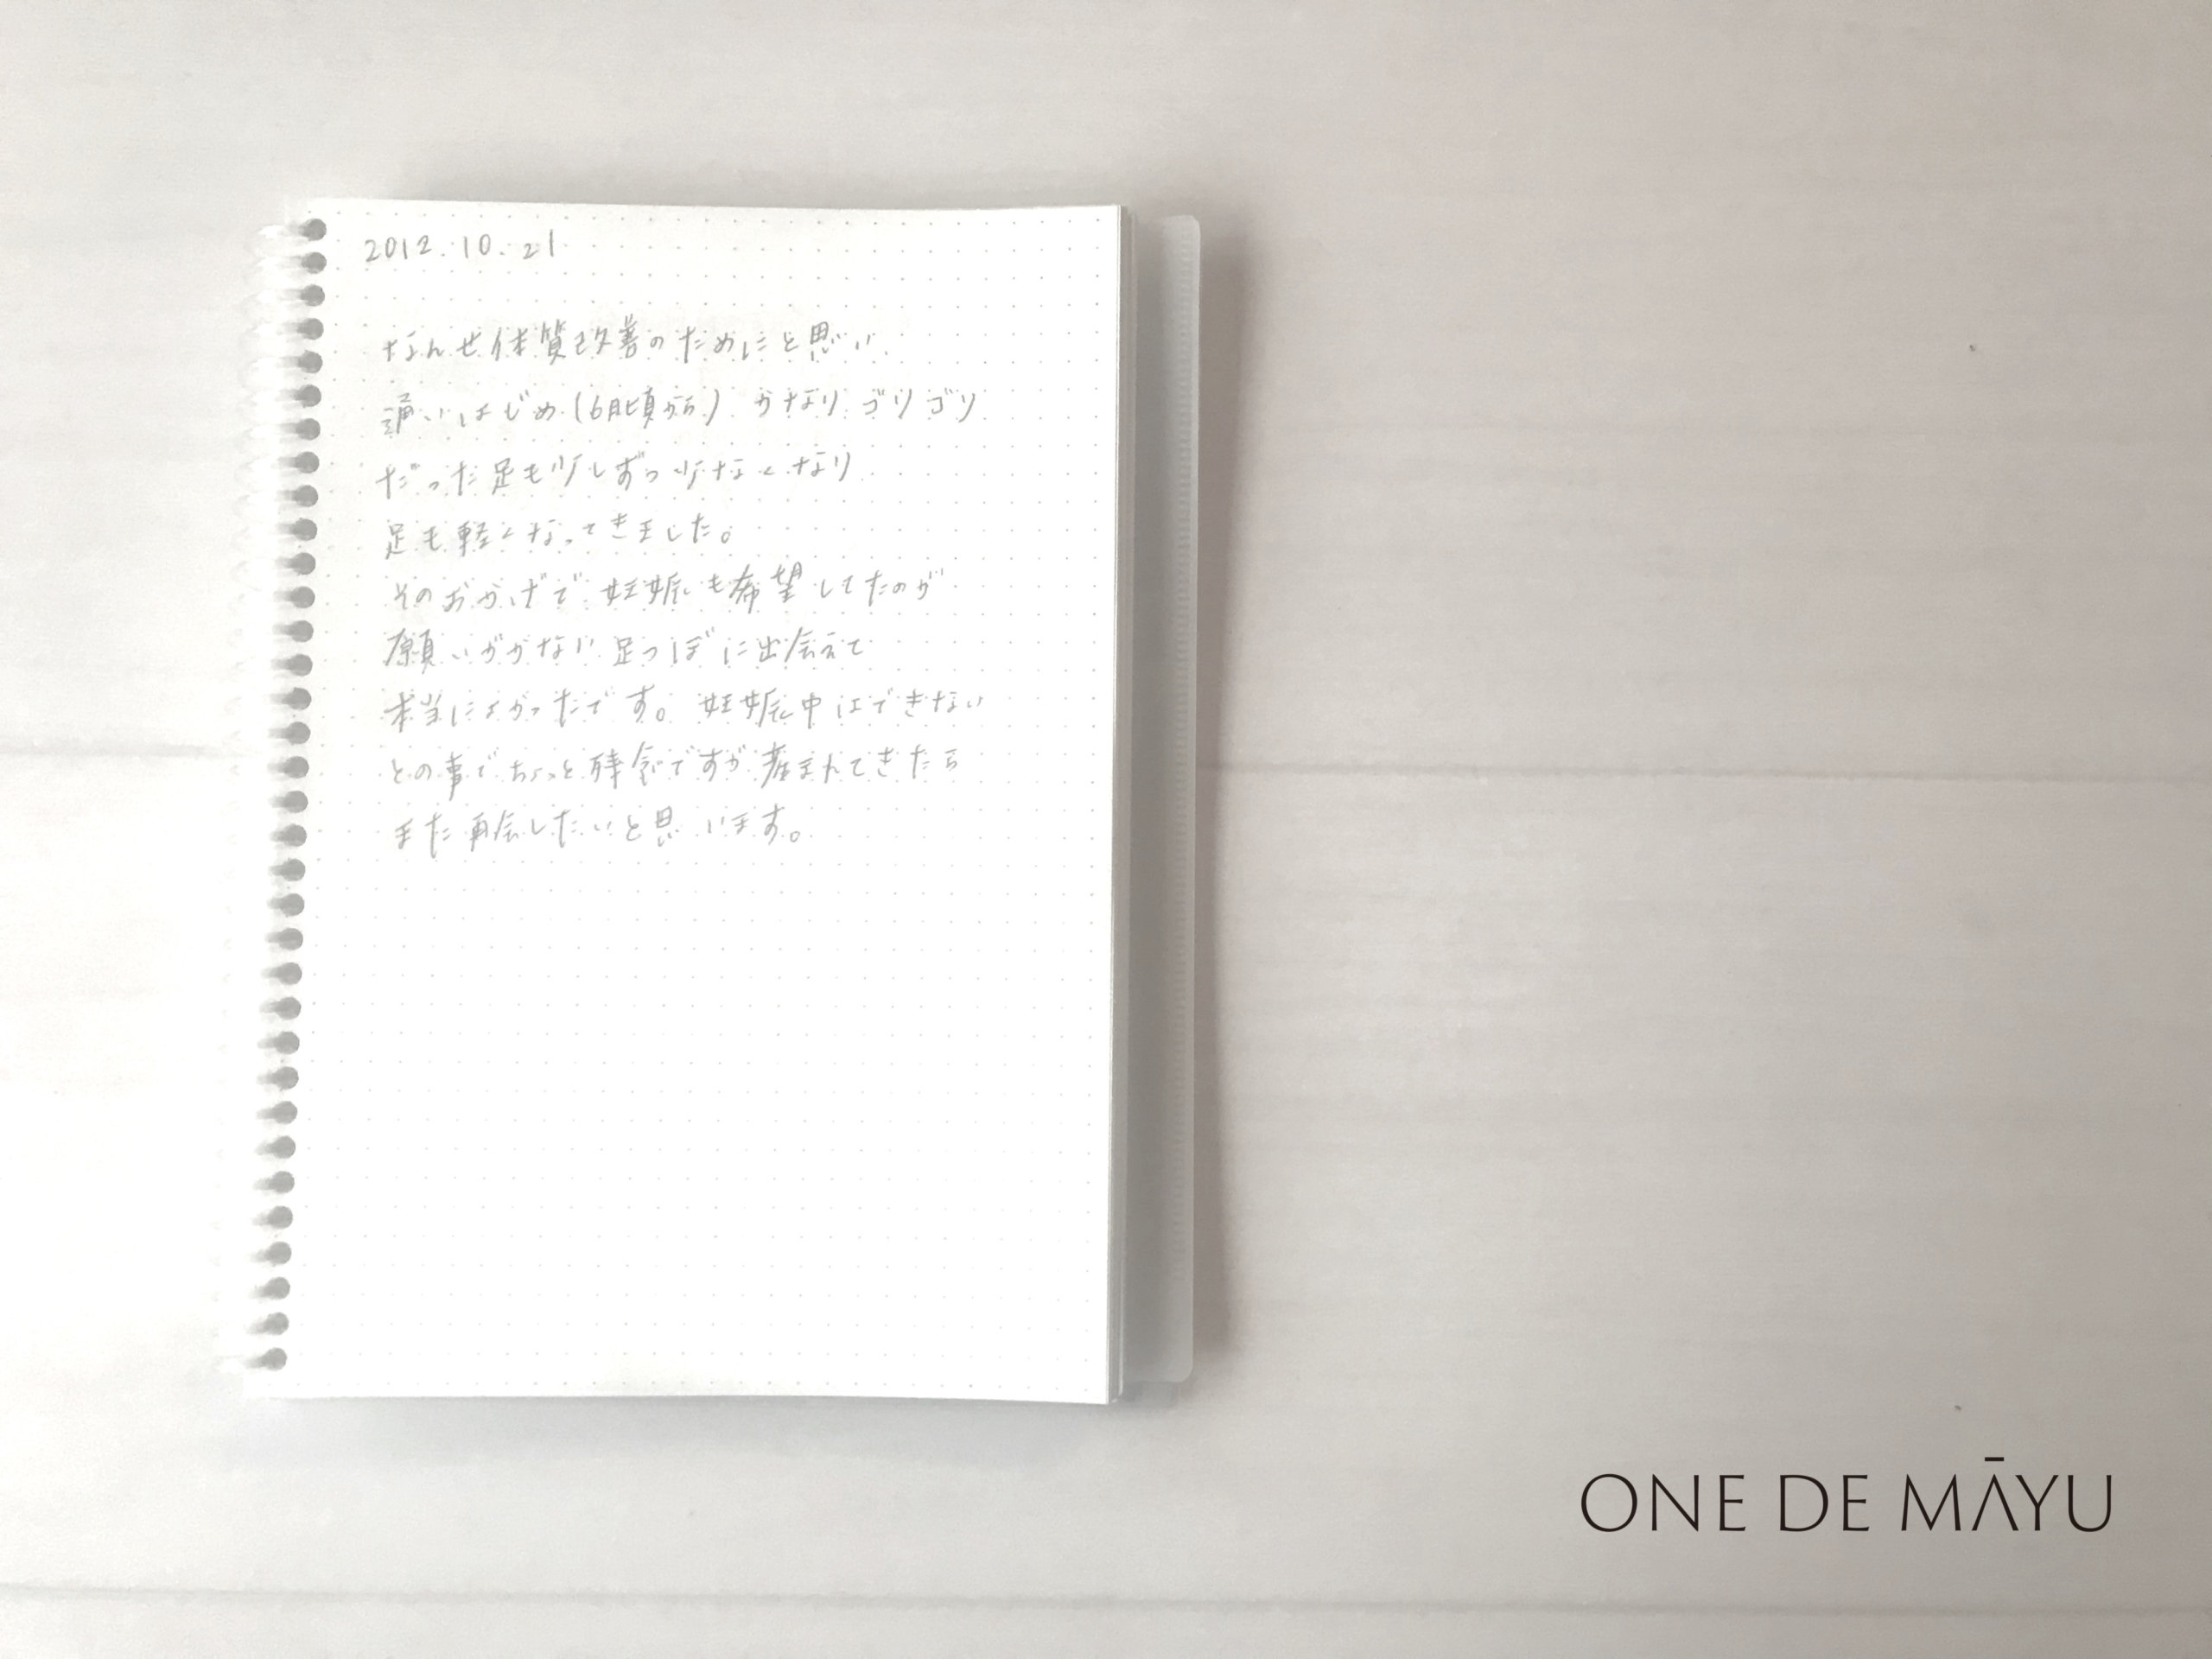 2012.10.21
なんせ体質改善のためにと思い
通いはじめ(6月頃から) かなりゴリゴリ
だった足も少しずつ少なくなり
足も軽くなってきました。
そのおかげで 妊娠も希望してたのが
願いがかない 足つぼに出会えて
本当によかったです。妊娠中はできない
との事でちょっと残念ですが産まれてきたら
また再会したいと思います。
ONE DE MĀYU